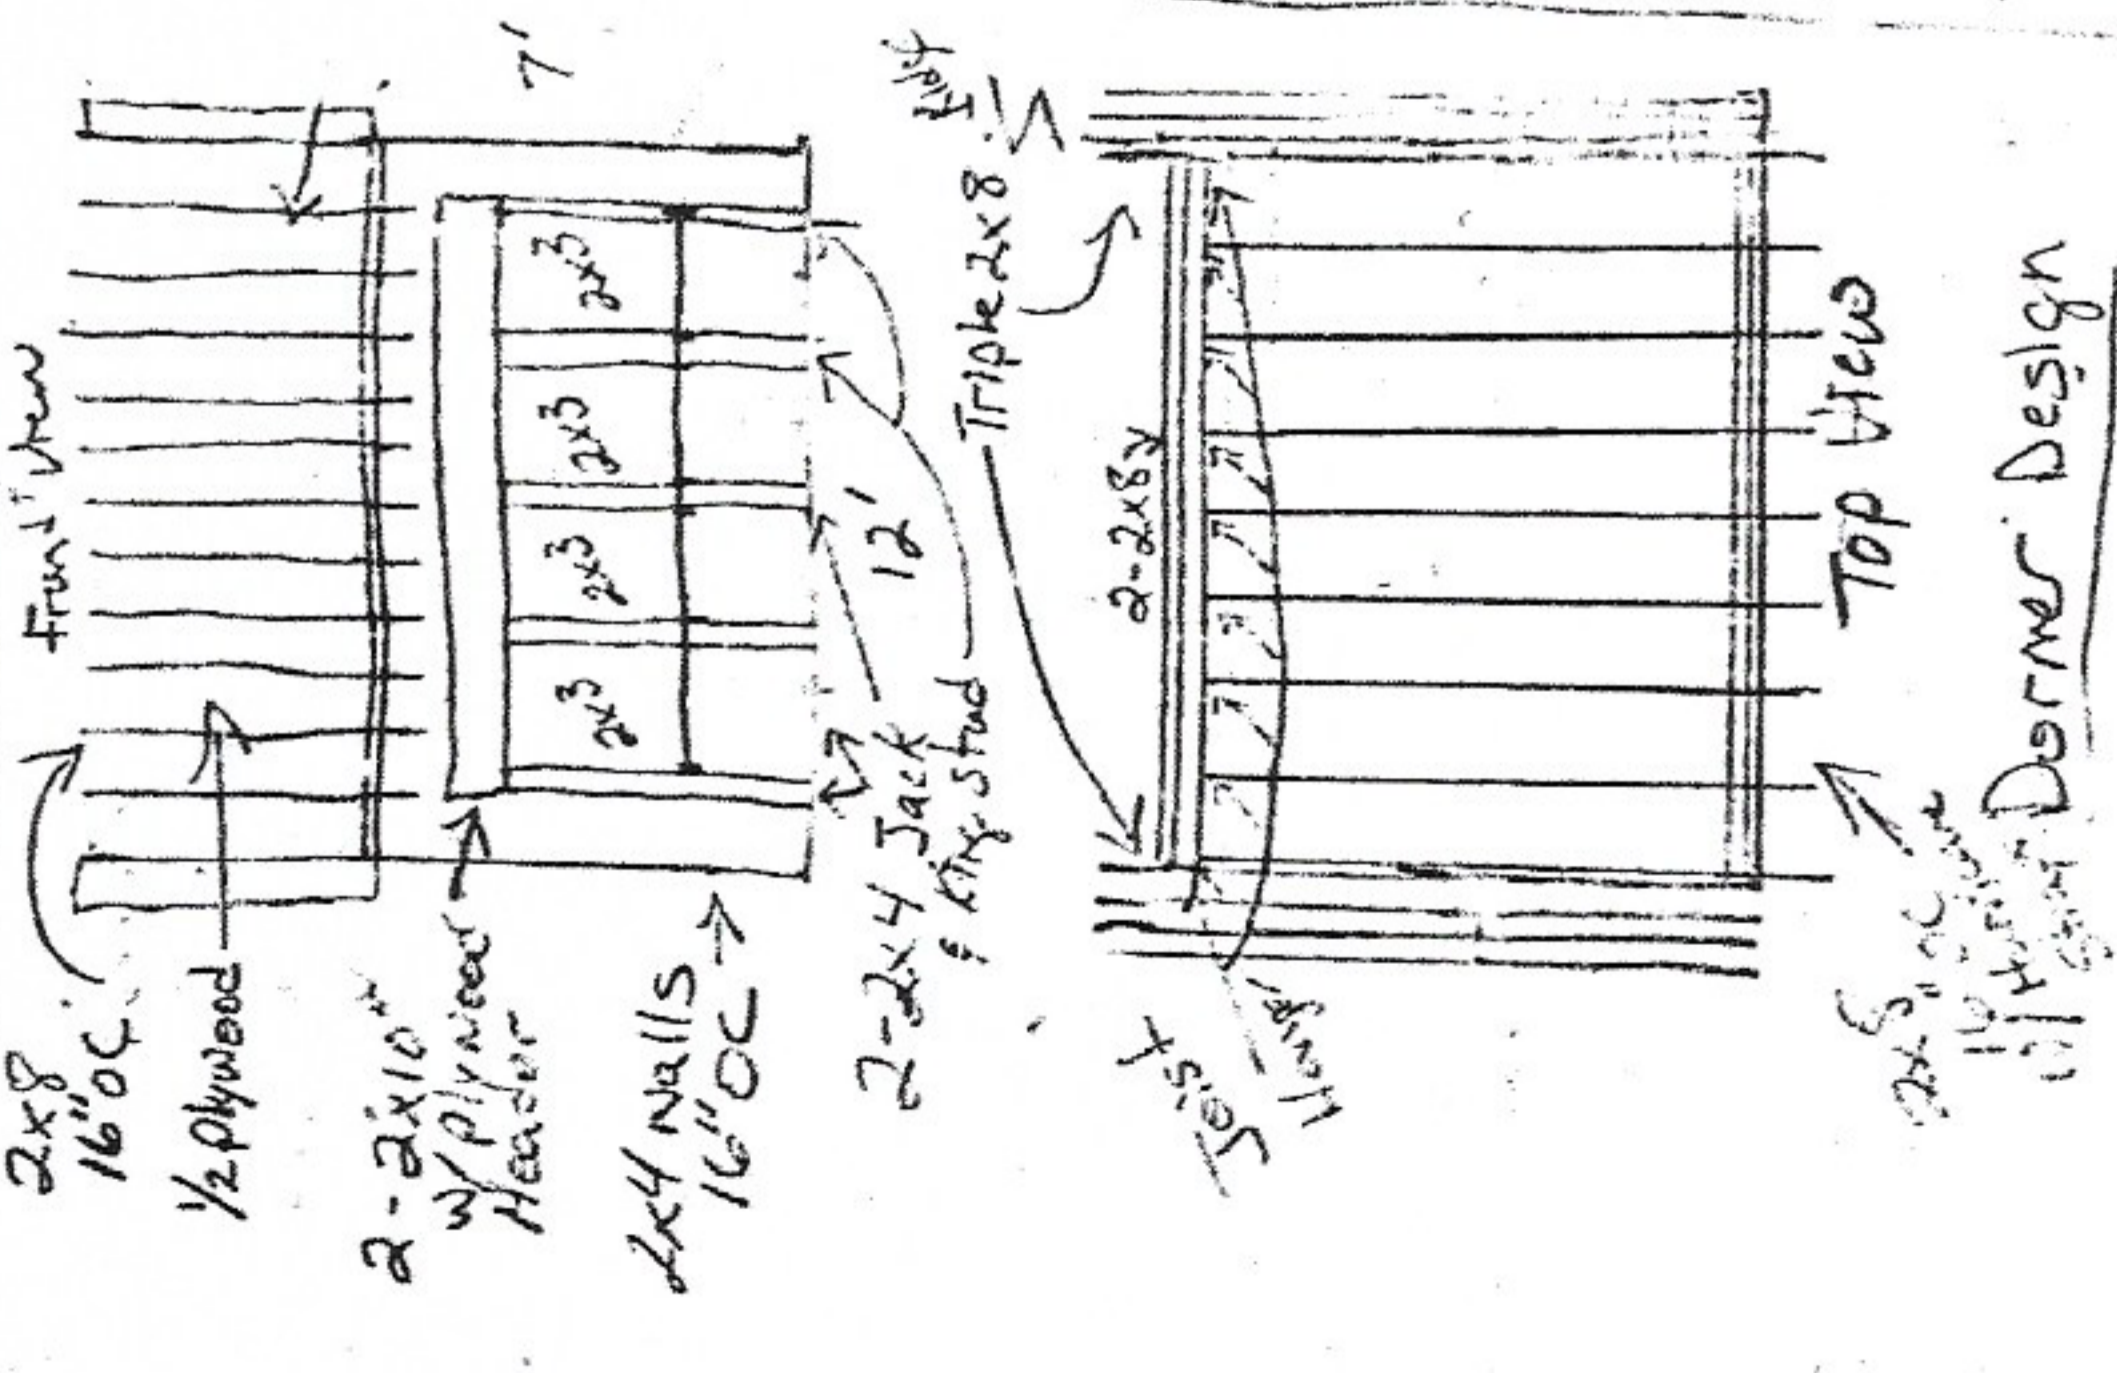 Front View
2x8
16" OC
1/2 plywood
2-2x10"
w/ plywood
Header
2x4 walls
16" OC
7'
2x3
2x3
2x3
2x3
12'
2-2x4 Jack
& King stud
Triple 2x8
2-2x8s
Joist
Hangr
2x8
16" OC
w/ Hurricane
Top View
Dormer Design